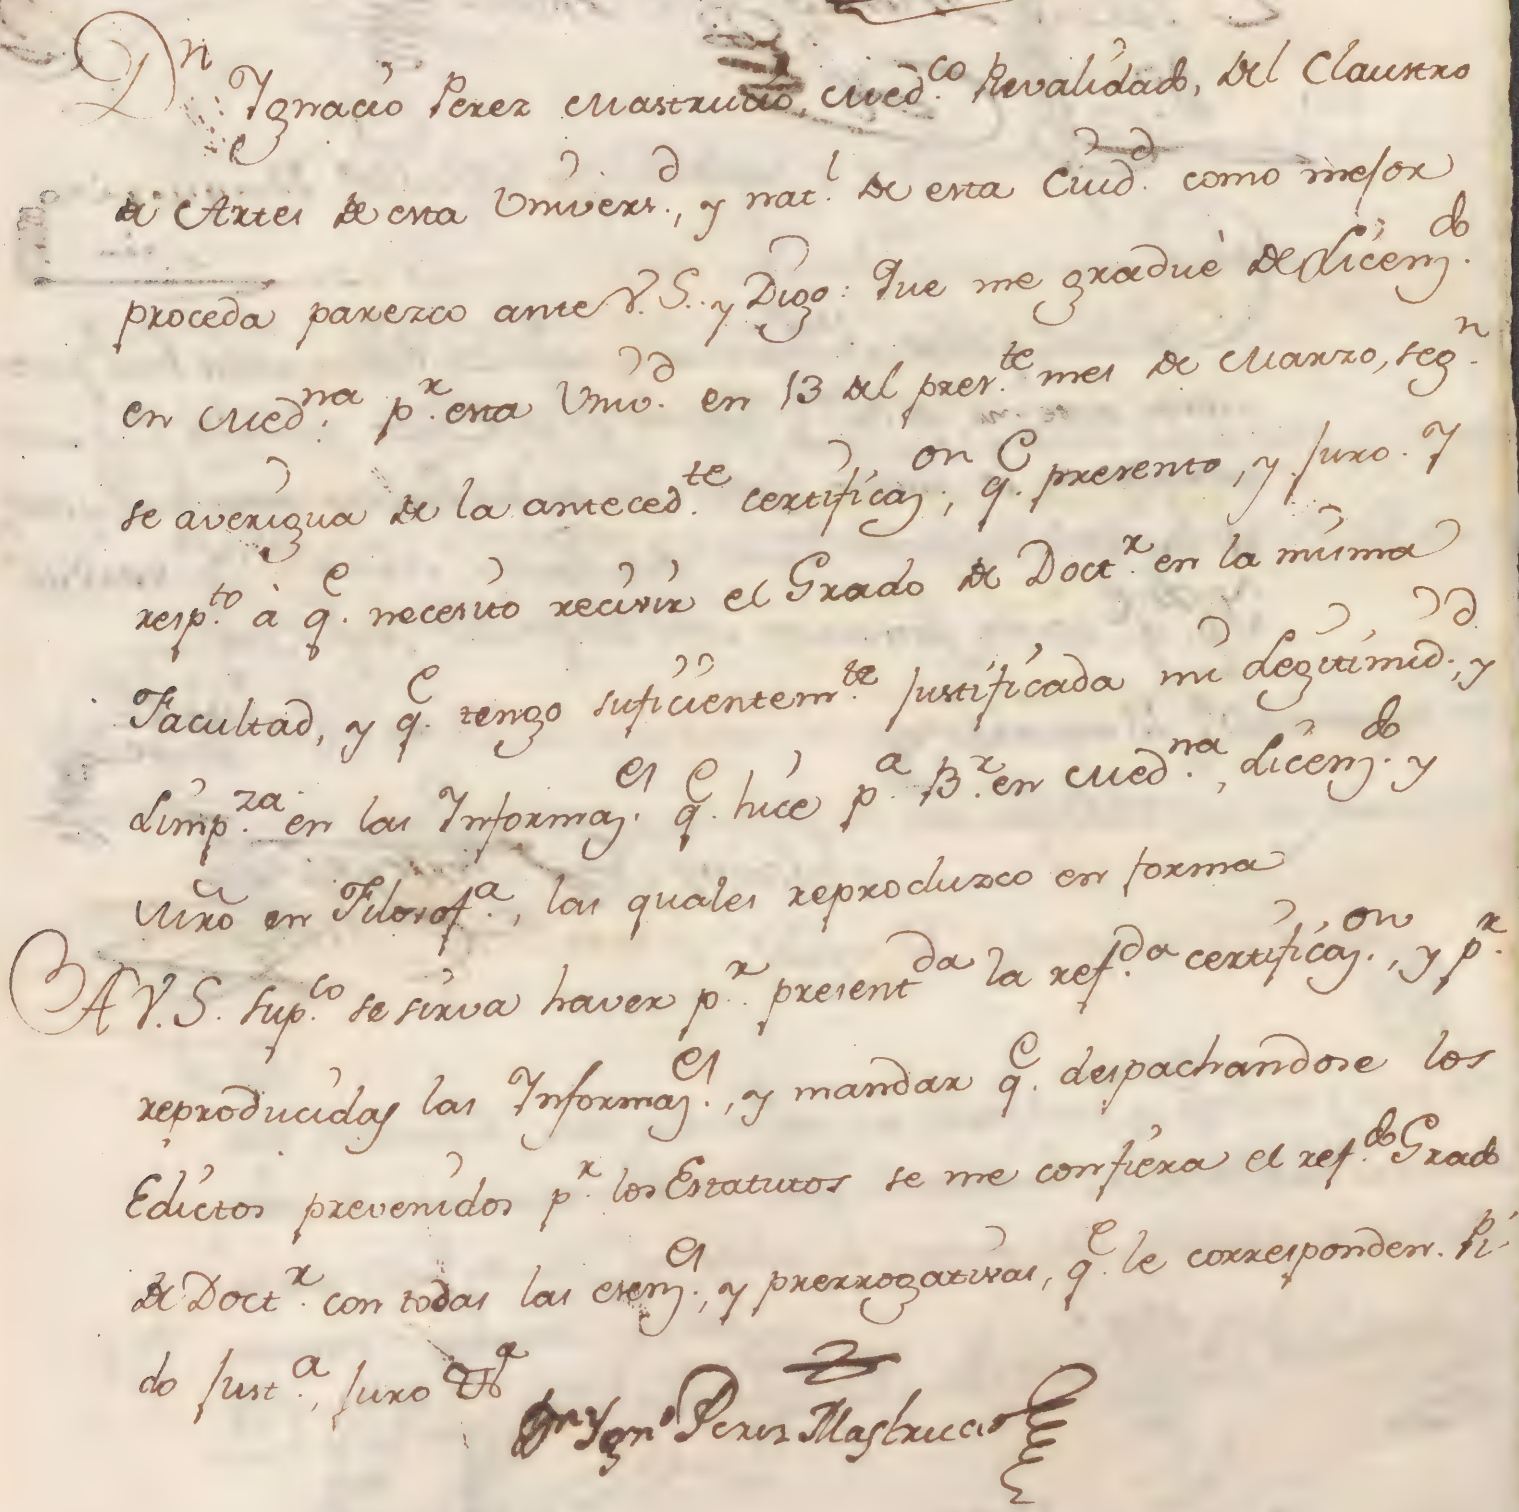 Dn Ygnacio Perez Mastrucio, Med.co Revalidado, del Claustro
de Artes de esta Univers.d, y nat.l de esta Ciud.d como mejor
proceda parezco ante V. S. y Digo: Que me graduè de Licenz.do
en Med.na p.r esta Univ.d en 13 del pres.te mes de Marzo, seg.n
se averigua de la anteced.te certificaz.on, q.e presento, y juro. Y
resp.to à q.e necesito recivir el Grado de Doct.r en la misma
Facultad, y q.e tengo suficientem.te justificada mi Legitimid.d, y
Limp.za en las Informaz.es q.e hice p.a B.r en Med.na, Licenz.do y
Mrõ en Filosof.a, las quales reproduzco en forma
A V. S. sup.co se sirva haver p.r present.da la ref.da certificaz.on, y p.r
reproducidas las Informaz.es, y mandar q.e despachandose los
Edictos prevenidos p.r los Estatutos se me confiera el ref.do Grado
de Doct.r con todas las esenz.es, y prerrogativas, q.e le corresponden. Pi-
do just.a, juro &.a
Dn Ygn.o Perez Mastrucio